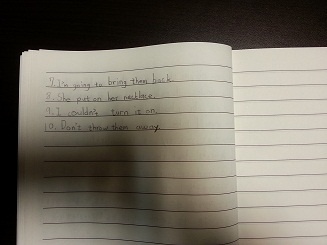 7. I'm going to bring them back
8. She put on her necklace.
9. I couldn't turn it on.
10. Don't throw them away.